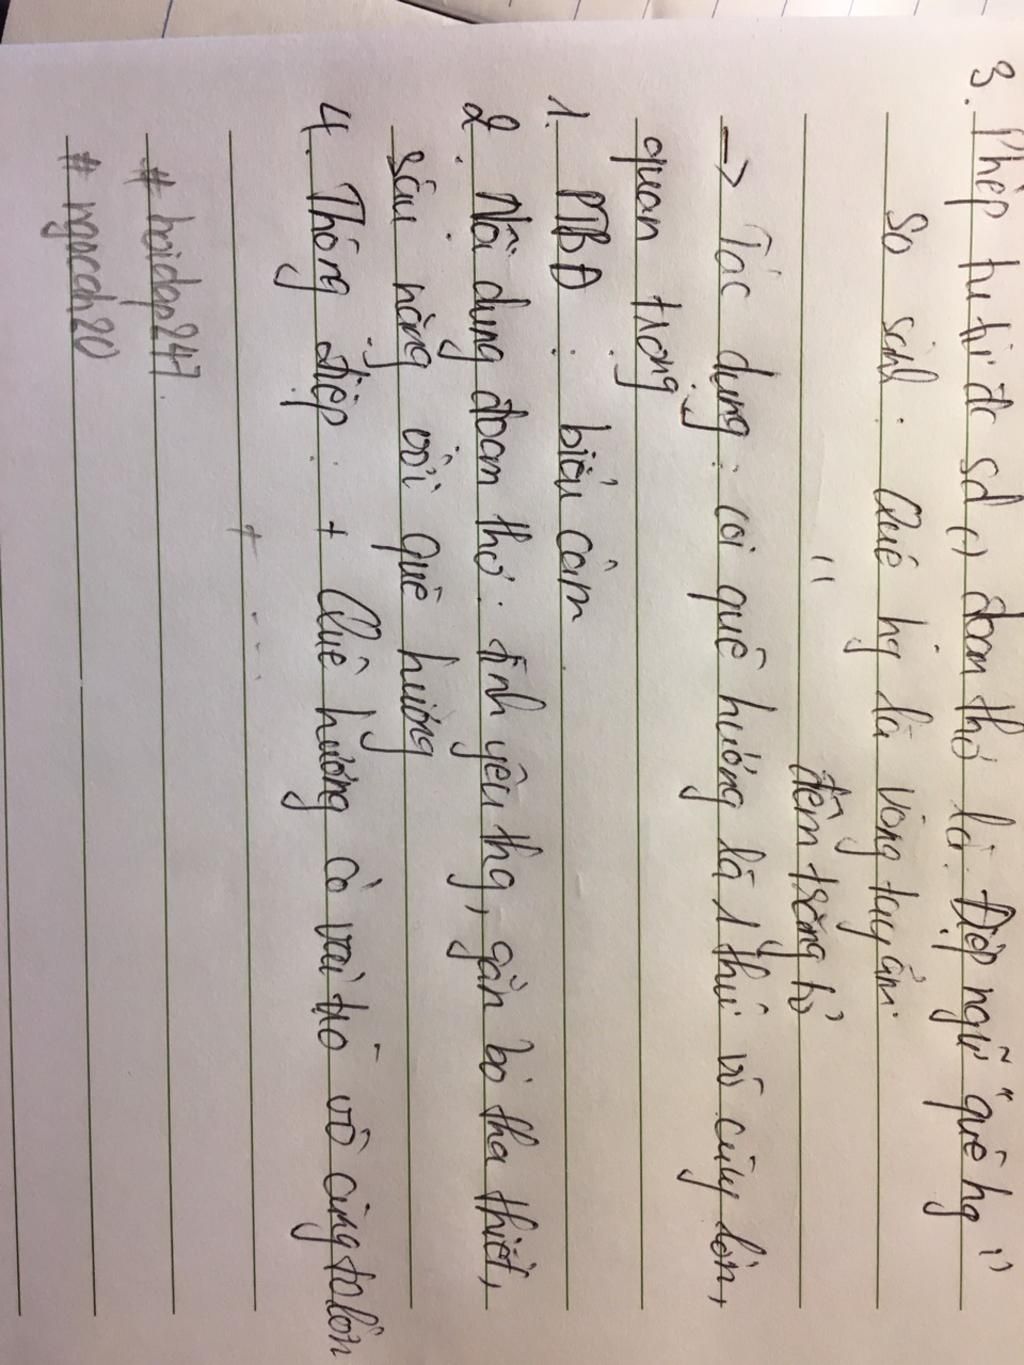 3. Phép tu từ đc sd () đoạn thơ là: Điệp ngữ "quê hg"
So sánh: Quê hg là vòng tay ấm
" đêm trăng tỏ
-> Tác dụng: coi quê hương là 1 thứ vô cùng lớn,
quan trọng
1. PTBĐ: biểu cảm
2. Nội dung đoạn thơ: tình yêu thg, gắn bó tha thiết,
sâu nặng với quê hương
4. Thông điệp: + Quê hương có vai trò vô cùng to lớn
+ ....
# hoidap247
# ngocanh20